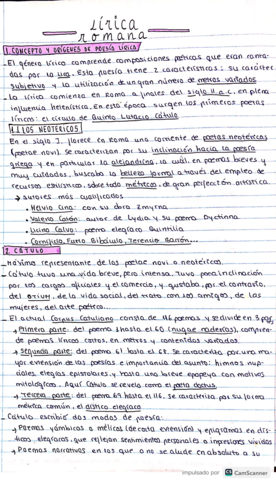 Lírica
romana
1. CONCEPTO Y ORÍGENES DE POESÍA LÍRICA
- El género lírico comprende composiciones poéticas que eran canta-
das por la lira. Esta poesía tiene 2 características: su carácter
subjetivo y la utilización de un gran número de metros variados
- La lírica comienza en Roma a finales del siglo II a.C, en plena
influencia helenística. En esta época surgen los primeros poetas
líricos: el círculo de Quinto Lutacio Cátulo
1.1 LOS NEOTÉRICOS
En el siglo I, florece en Roma una corriente de poetas neotéricos
(poetae novi). Se caracterizan por su inclinación hacia la poesía
griega y en particular la alejandrina, la cual, en poemas breves y
muy cuidados, buscaba la belleza formal a través del empleo de
recursos estilísticos, sobre todo métricos, de gran perfección artística.
→ autores más cualificados
• Helvio Cina: con su obra Zmyrna
• Valerio Catón: autor de Lydia y su poema Dyctinna
• Licinio Calvo: poema elegiaco Quintilia
• Cornificio, Furio Bibáculo, Terencio Varrón...
2. CATULO
- Máximo representante de los poetae novi o neotéricos.
- Catulo tuvo una vida breve, pero intensa. Tuvo poca inclinación
por los cargos oficiales y el comercio, y gustaba, por el contrario,
del otium, de la vida social, del trato con los amigos, de las
mujeres, del arte poético...
- El actual Corpus Catuliano consta de 116 poemas y se divide en 3 pag,
→ Primera parte: del poema 1 hasta el 60 (nugae raderías), compren-
de poemas líricos cortos, en metros y contenidos variados
→ Segunda parte: del poema 61 hasta el 68. Se caracteriza por una ma-
yor extensión de las poesías e importancia del asunto: himnos nup-
ciales, elegías epistolares, y hasta una breve epopeya con motivos
mitológicos. Aquí Catulo se revela como el poeta doctus
→ Tercera parte: del poema 69 hasta el 116, se caracteriza por su forma
métrica común, el dístico elegiaco
- Catulo escribió dos modos de poesía:
→ Poemas yámbicos o mélicos (de corta extensión) y epigramas en dís-
ticos elegiacos, que reflejan sentimientos personales o impresiones vividas
→ Poemas narrativos en los que no se alude en absoluto a su
impulsado por CS CamScanner